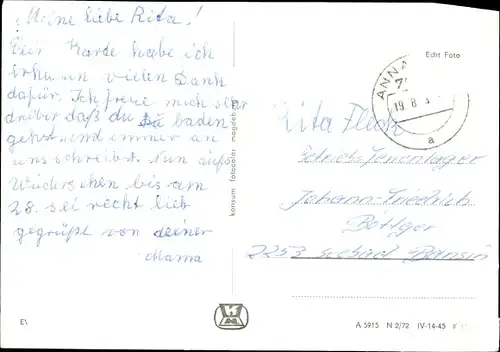 Meine liebe Rita!
Deine Karte habe ich
erhalten vielen Dank
dafür. Ich freue mich sehr
drüber daß du baden
gehst und immer an
uns schreibst. Nun aufs
Wiedersehen bis am
28. sei recht lieb
gegrüßt von deiner
Mama
Echt Foto
ANNA
19. 8.
a
Rita Fleck
Betriebsferienlager
Johann-Friedrich
Böttger
2253 Seebad Bansin
konsum fotocolor magdeburg
A 5915 N 2/72 IV-14-45